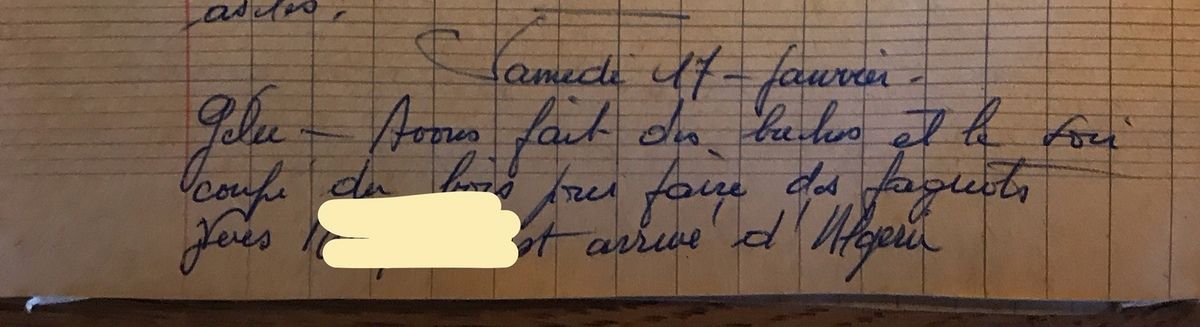 Samedi 17 - Janvier -
Gelée - Avons fait des buches et le soir
coupé du bois pour faire des fagots
est arrivé d'Algerie